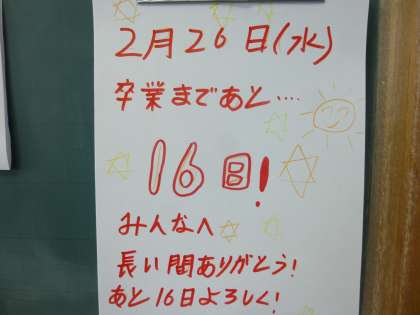 2月26日(水)
卒業まであと‥‥
16日!
みんなへ
長い間ありがとう!
あと16日よろしく!